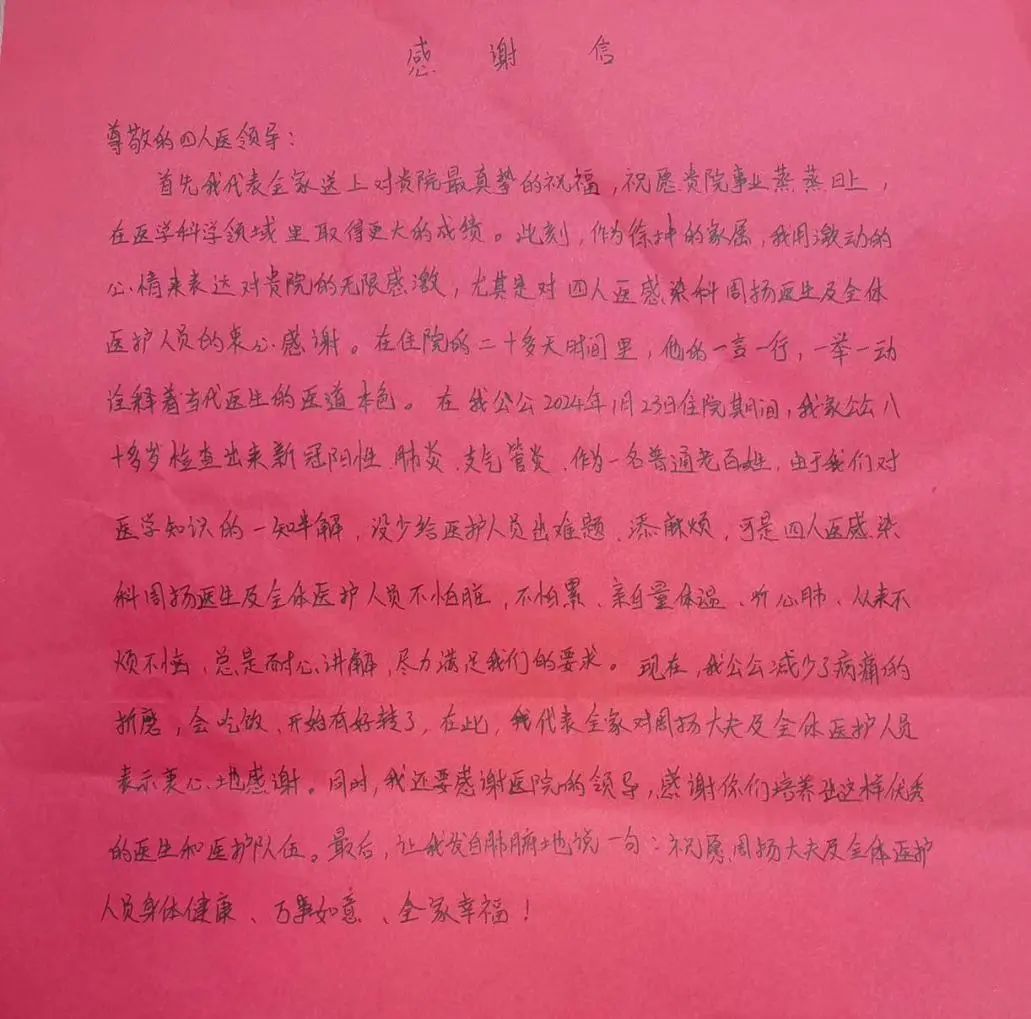 感谢信
尊敬的四人医领导：
首先我代表全家送上对贵院最真挚的祝福，祝愿贵院事业蒸蒸日上，
在医学科学领域里取得更大的成绩。此刻，作为徐坤的家属，我用激动的
心情来表达对贵院的无限感激，尤其是对四人医感染科周扬医生及全体
医护人员的衷心感谢。在住院的二十多天时间里，他的一言一行，一举一动
诠释着当代医生的医道本色。在我公公2024年1月23日住院期间，我家公公八
十多岁检查出来新冠阳性、肺炎、支气管炎、作为一名普通老百姓，由于我们对
医学知识的一知半解，没少给医护人员出难题、添麻烦，可是四人医感染
科周扬医生及全体医护人员不怕脏，不怕累、亲自量体温、听心肺、从来不
烦不恼、总是耐心讲解，尽力满足我们的要求。现在，我公公减少了病痛的
折磨，会吃饭、开始有好转了，在此，我代表全家对周扬大夫及全体医护人员
表示衷心地感谢。同时，我还要感谢医院的领导，感谢你们培养出这样优秀
的医生和医护队伍。最后，让我发自肺腑地说一句：祝愿周扬大夫及全体医护
人员身体健康、万事如意、全家幸福！